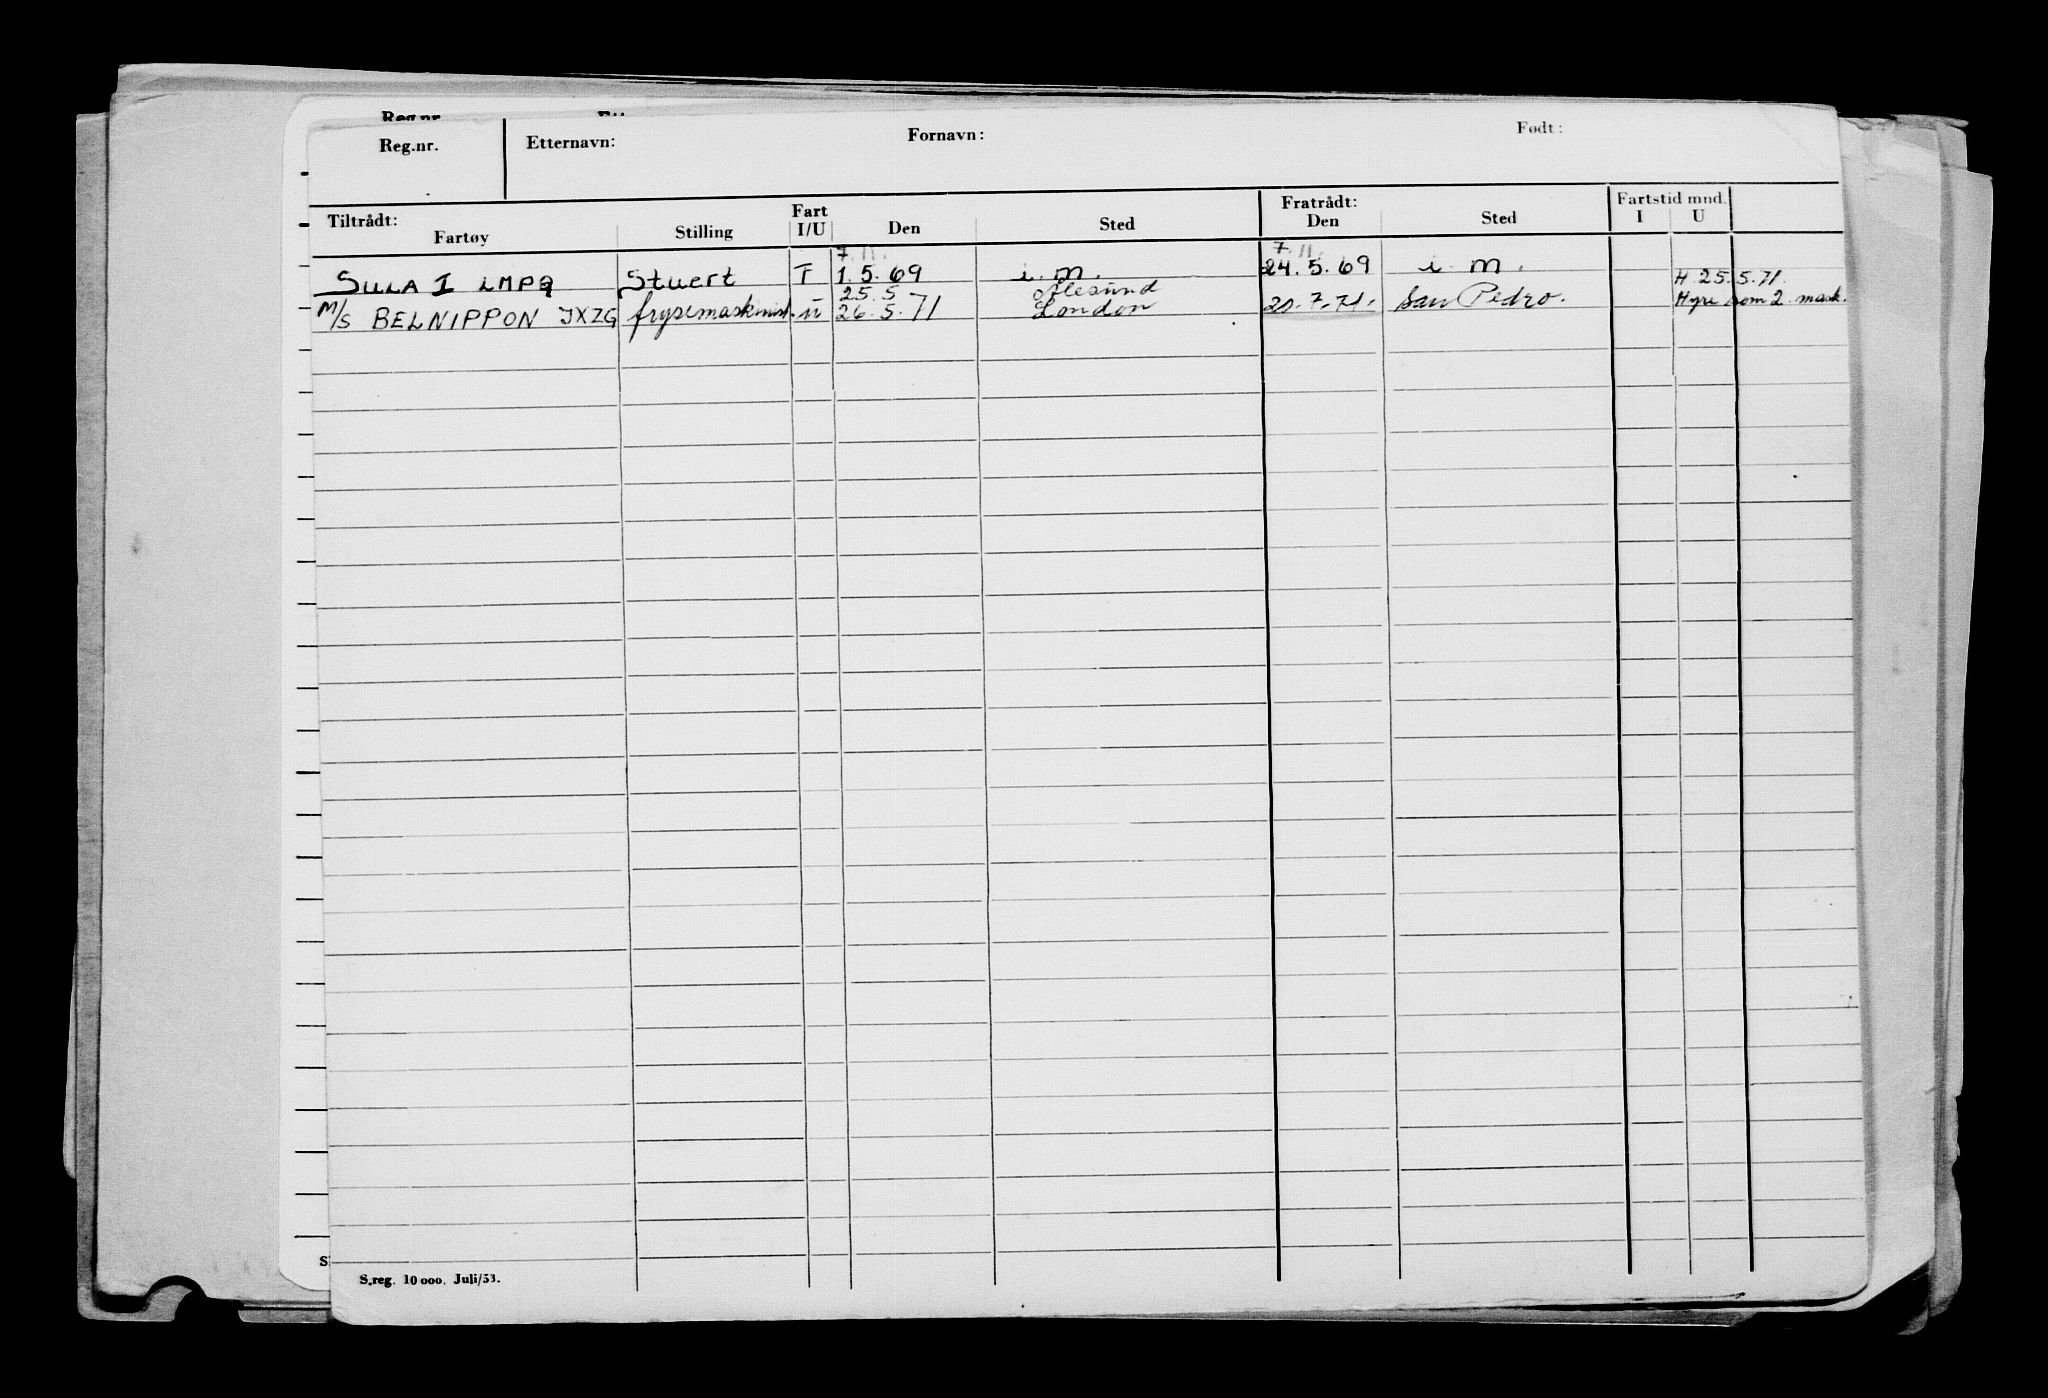 Reg.nr.
Reg.nr. Etternavn: Fornavn: Født:
Tiltrådt: Fart Fratrådt: Fartstid mnd.
Fartøy Stilling I/U Den Sted Den Sted I U
7. 11. 7. 11.
SULA I LMPQ Stuert F 1.5.69 i.m. 24.5.69 i m.
25.5 Alesund H 25.5.71.
M/S BELNIPPON JXZG frysemaskinist. u 26.5.71 London 20.7.71. San Pedro. Hyre som 2. mask.
S.reg. 10 000. Juli/53.